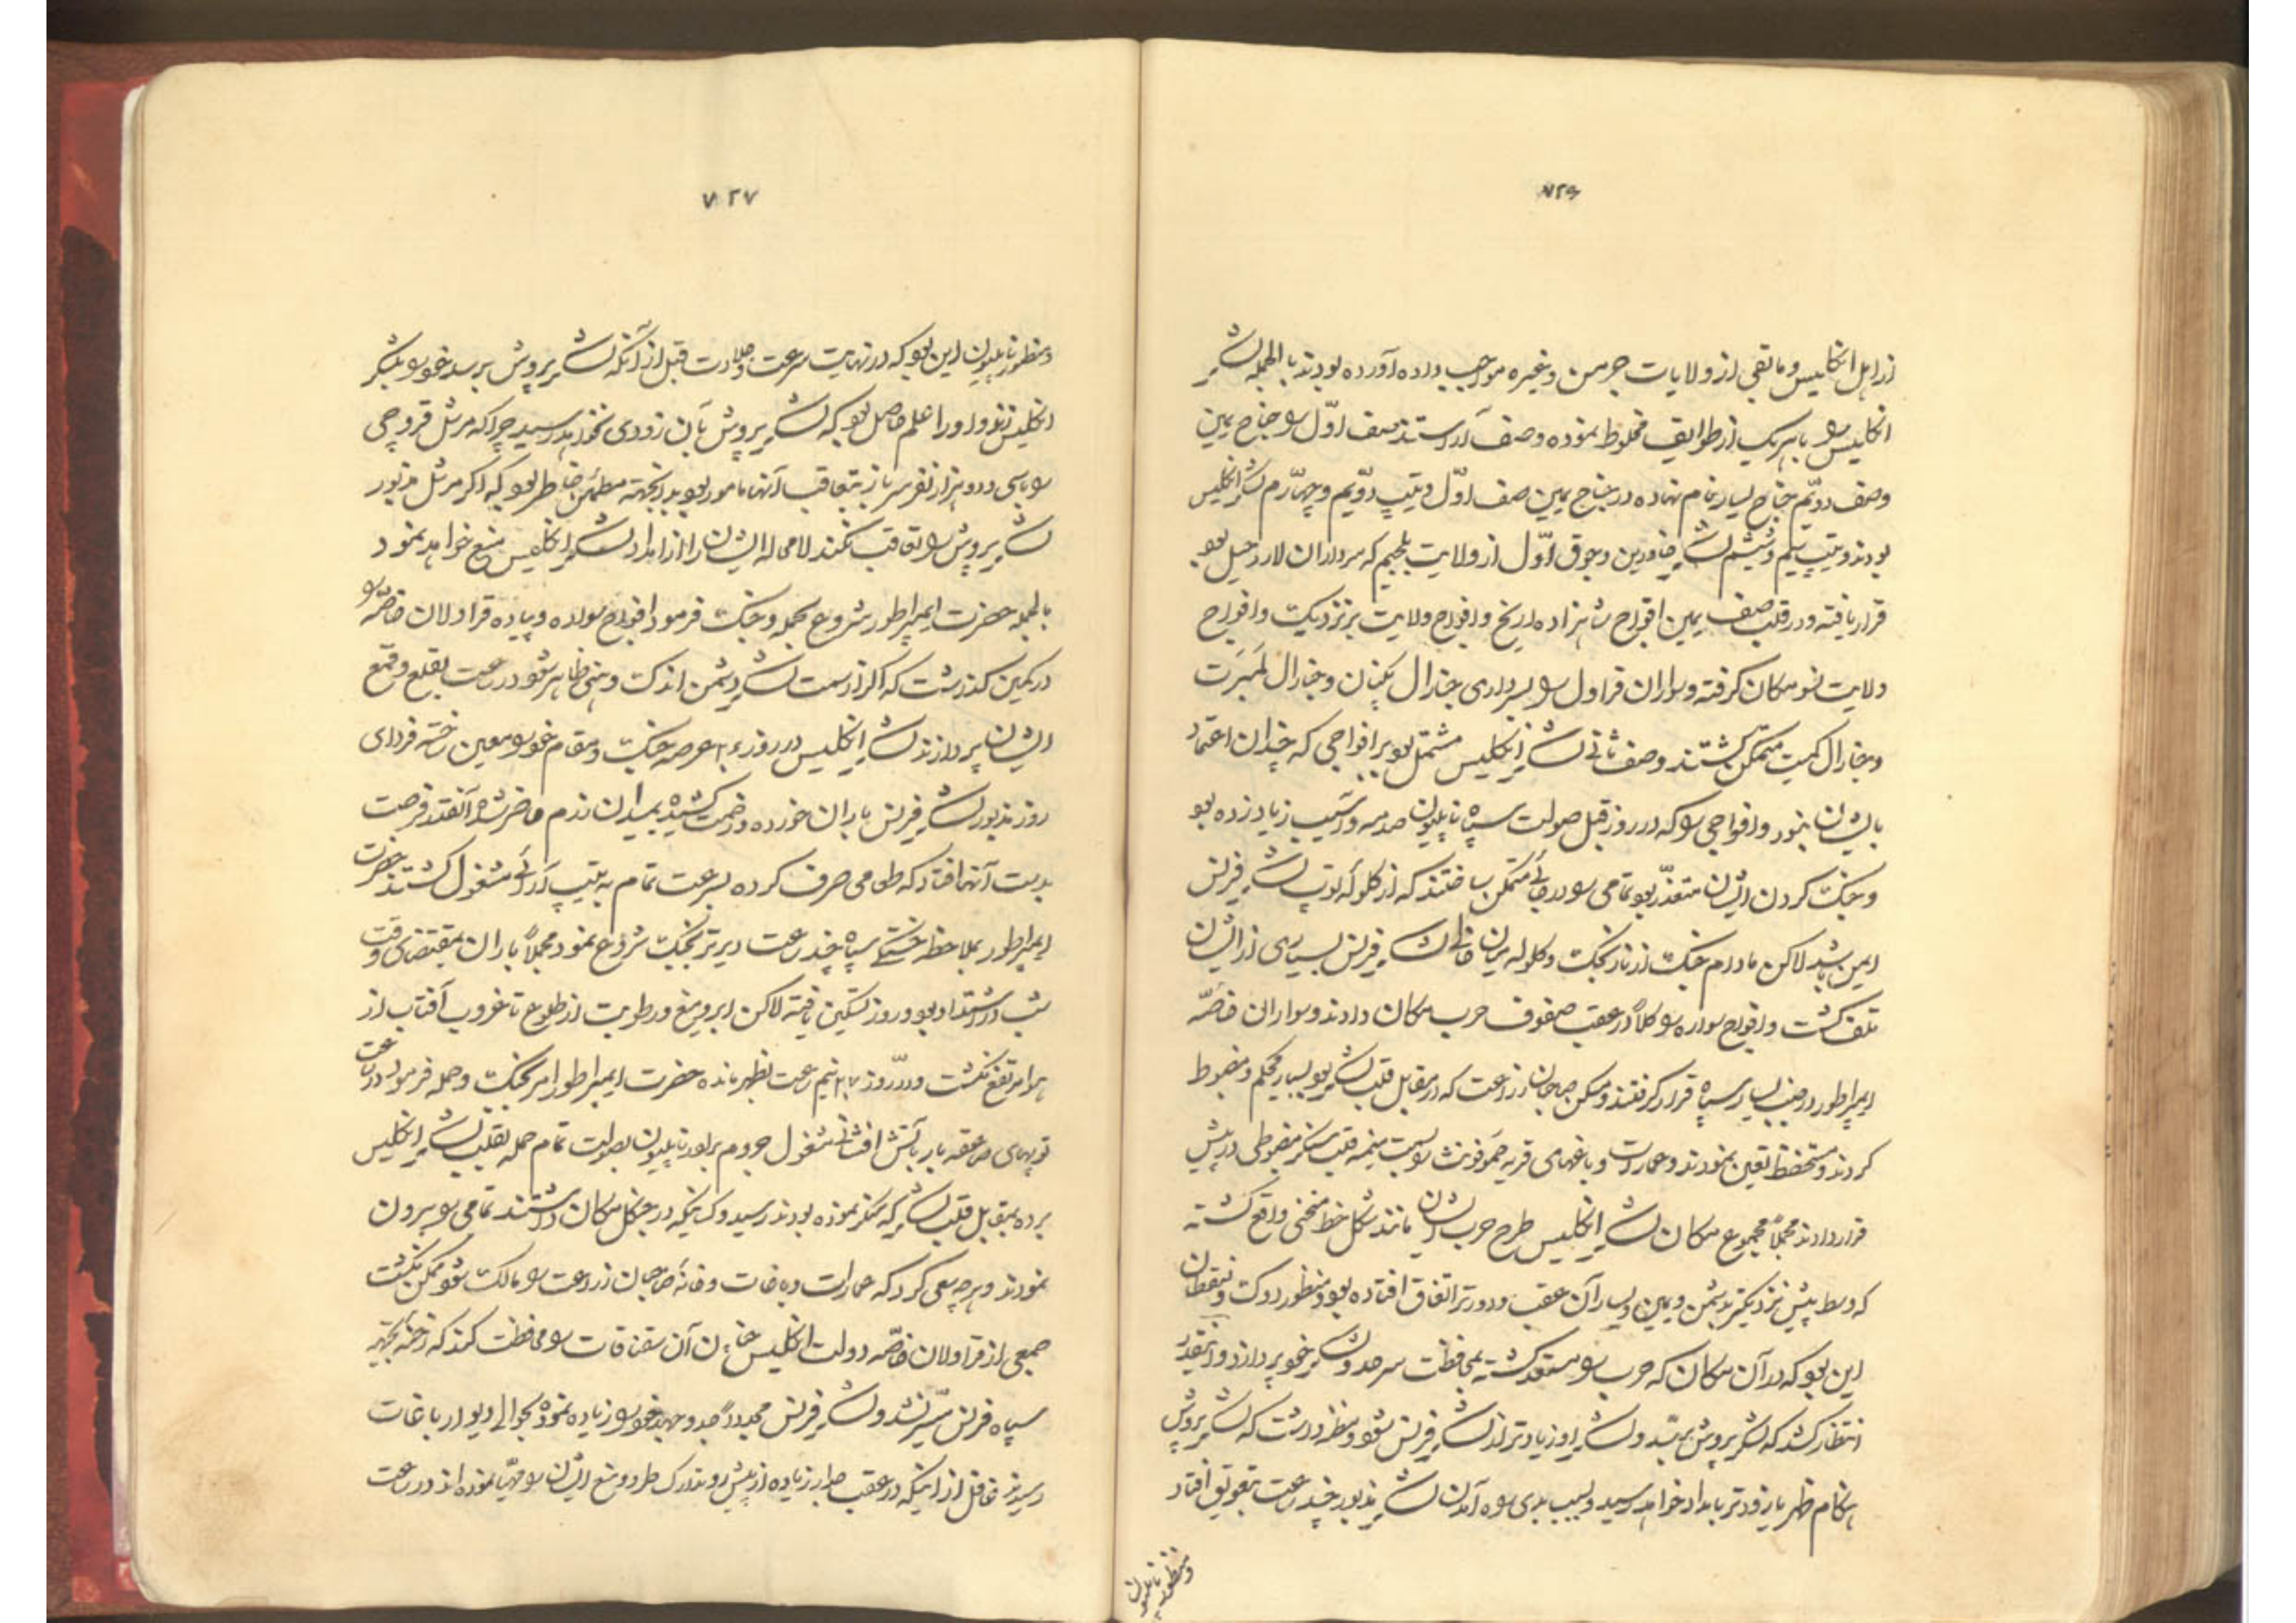 ۷۲۶
از اهل انگلیس و مابقی از ولایات جرمن و غیره مواجب داده آورده بودند بالجمله لشکر
انگلیس را با هر یک از طوایف مخلوط نموده و صف آراستند صف اوّل را جناح یمین
وصف دویّم جناح یسار نام نهاده در جناح یمین صف اوّل و تیپ دویّم و چهارم لشکر انگلیس
بودند و تیپ سیم و ششم لشکر و جوق اوّل از ولایت بلجیم که سرداران لارد حیل بود
قرار یافته و در قلب صف یمین افواج شاهزاده اریخ و افواج ولایت برنزدیک و افواج
ولایت نسو مکان گرفته و سواران قراول را بسرداری جنارال و جنارال لمبرت
و جنارال کمپت متمکن گشتند وصف ثانی لشکر انگلیس مشتمل بود بر افواجی که چندان اعتماد
بایشان نبود و افواجی را که در روز قبل صولت سپاه ناپلیون صدمه و آسیب زیاد زده بود
و جنگ کردن ایشان متعذّر بود تمامی را در جائی متمکن ساختند که از گلوله توپ لشکر فرنس
ایمن باشند لاکن مادام جنگ از نارنجک و گلوله لشکر فرنس بسیاری از ایشان
تلف گشت و افواج سواره را کلاً در عقب صفوف حرب مکان دادند و سواران خاصّه
ایمپراطور در جنب یسار سپاه قرار گرفتند و مسکن صاحبان زراعت که در مقابل قلب لشکر بود بسیار محکم و مضبوط
کردند و مستحفظ تعین نمودند و عمارات و باغهای قریه را بسمت میمنه قلب سنگر مضبوطی در پیش
قرار دادند مجملاً مجموع مکان لشکر انگلیس طرح حرب ایشان مانند شکل خط منحنی واقع گشته
که وسط پیش نزدیکتر بدشمن و یمین و یسار آن عقب و دورتر اتفاق افتاده بود و منظور دوک
این بود که در آن مکان که حرب را مستعد گشته بمحافظت سرحد و لشکر خود پردازد و آنقدر
انتظار کشد که لشکر پروش بیاید و لشکر او زیادتر از لشکر فرنس شود و منظور داشت که لشکر پروش
هنگام ظهر یا زودتر بامداد خواهد رسید و بسبب بدی راه آمدن لشکر مذبور چند ساعت بتعویق افتاد
و منظور ناپلیون
۷۲۷
و منظور ناپلیون این بود که در نهایت سرعت و جلادت قبل از آنکه لشکر پروش برسد خود را بلشکر
انگلیس زند و او را علم حاصل بود که لشکر پروش بآن زودی نخواهد رسید چرا که مرشل قروچی
را با سی و دو هزار نفر سرباز بتعاقب آنها مامور بود بدینجهته مطمئن خاطر بود که اگر مرشل مذبور
لشکر پروش را تعاقب نکند لامحاله ایشان را از امداد لشکر انگلیس منع خواهد نمود
بالجمله حضرت ایمپراطور شروع بحمله و جنگ فرمود افواج سواره و پیاده قراولان خاصّه را
در کمین گذاشت که اگر از سمت لشکر دشمن اندک وهنی ظاهر شود در ساعت بقلع و قمع
ایشان پردازند لشکر انگلیس در روز عرصه جنگ و مقام خود را معین ساخته فردای
روز مذبور لشکر فرنس باران خورده و زحمت کشیده بمیدان رزم حاضر شد آنقدر فرصت
بدست آنها افتاد که طعامی صرف کرده بسرعت تمام به تیپ آرائی مشغول گشتند حضرت
ایمپراطور بملاحظه خستگی سپاه چند ساعت دیرتر بجنگ شروع نمود مجملاً باران بمقتضای وقت
شب در اشتداد بود و روز تسکین یافته لاکن ابر و میغ و رطوبت از طلوع تا غروب آفتاب از
هوا مرتفع نگشت و در روز نیم ساعت بظهر مانده حضرت ایمپراطور امر بجنگ و حمله فرمود در ساعت
توپهای صاعقه بار بآتش افشانی مشغول جروم برادر ناپلیون بصولت تمام حمله بقلب لشکر انگلیس
برده بمقابل قلب لشکر که سنگر نموده بودند رسید و کسانیکه در جنگل مکان داشتند تمامی را بیرون
نمودند و هر چه سعی کرد که عمارات و باغات و خانه صاحبان زراعت را مالک شود ممکن نگشت
جمعی از قراولان خاصّه دولت انگلیس آن را محافظت کردند که رخنه بجهته
سپاه فرنس میّسر نشد و لشکر فرنس مجدداً جد و جهد خود را زیاده نموده بحوالی دیوار باغات
رسیدند غافل از اینکه در عقب جدار زیاده از پیش تدارک طرد و منع ایشان را مهیّا نموده اند در ساعت